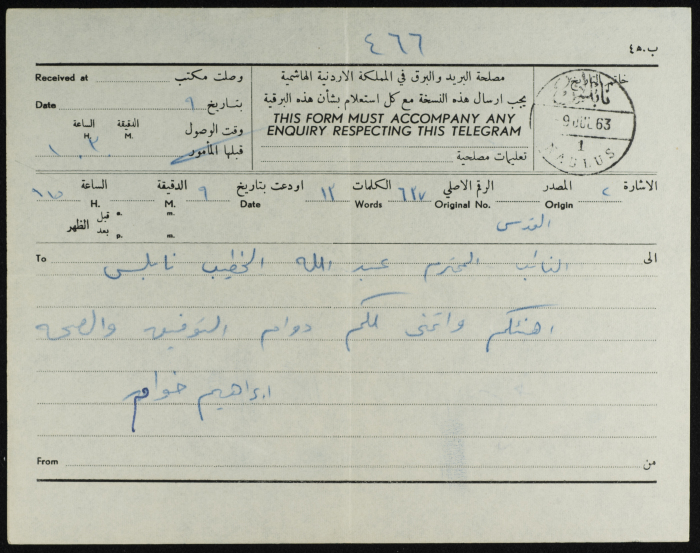 ٤٦٦
ب.ه٤
Received at وصلت مكتب
Date بتاريخ ٩
الساعة الدقيقة وقت الوصول
H. M.
قبلها المأمور
مصلحة البريد والبرق في المملكة الاردنية الهاشمية
يجب ارسال هذه النسخة مع كل استعلام بشأن هذه البرقية
THIS FORM MUST ACCOMPANY ANY
ENQUIRY RESPECTING THIS TELEGRAM
تعليمات مصلحية
خاتم التاريخ
نابلس
9 JUL 63
1
NABLUS
الاشارة المصدر ٢ الرقم الاصلي ٦٢٧ الكلمات ١٣ اودعت بتاريخ ٩ الدقيقة الساعة
Origin Original No. Words Date M. H.
قبل a. m.
الظهر
بعد p. m.
القدس
To الى
النائب المحترم عبد الله الخطيب نابلس
اهنئكم واتمنى لكم دوام التوفيق والصحه
ابراهيم
From من